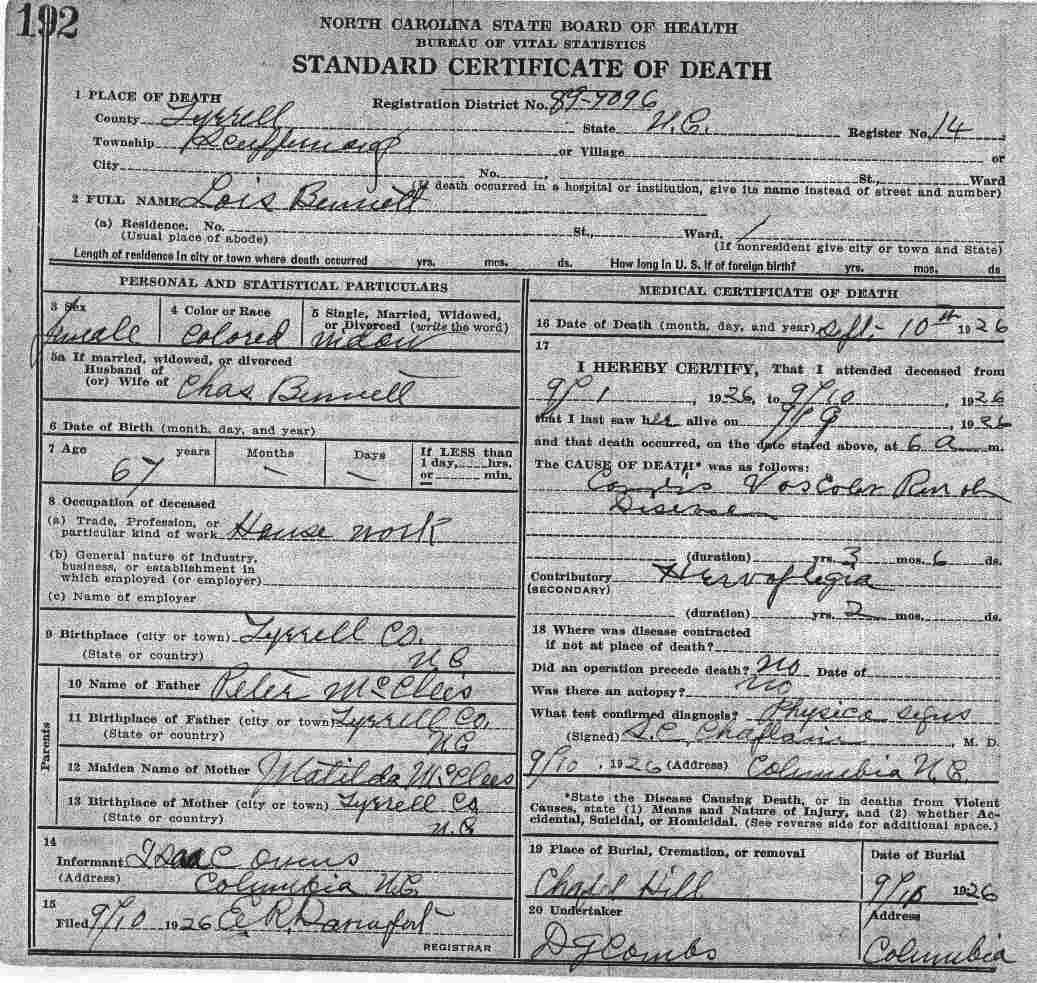 192
NORTH CAROLINA STATE BOARD OF HEALTH
BUREAU OF VITAL STATISTICS
STANDARD CERTIFICATE OF DEATH
1 PLACE OF DEATH
Registration District No. 89-7096
County Tyrrell State N.C. Register No. 14
Township Scuppernong or Village or
City No. St., Ward
(If death occurred in a hospital or institution, give its name instead of street and number)
2 FULL NAME Lois Bennett
(a) Residence. No. St., Ward.
(Usual place of abode) (If nonresident give city or town and State)
Length of residence in city or town where death occurred yrs. mos. ds. How long in U. S. if of foreign birth? yrs. mos. ds
PERSONAL AND STATISTICAL PARTICULARS
3 Sex 4 Color or Race 5 Single, Married, Widowed, or Divorced (write the word)
female colored widow
5a If married, widowed, or divorced
Husband of
(or) Wife of Chas. Bennett
6 Date of Birth (month, day, and year)
7 Age years Months Days If LESS than 1 day, hrs. or min.
67 — —
8 Occupation of deceased
(a) Trade, Profession, or particular kind of work House work
(b) General nature of industry, business, or establishment in which employed (or employer)
(c) Name of employer
9 Birthplace (city or town) Tyrrell Co.
(State or country) N.C
Parents
10 Name of Father Peter McClees
11 Birthplace of Father (city or town) Tyrrell Co.
(State or country) N.C
12 Maiden Name of Mother Matilda McClees
13 Birthplace of Mother (city or town) Tyrrell Co
(State or country) N.C
14
Informant Isaac Owens
(Address) Columbia N.C.
15
Filed 9/10 1926 E R Davenport
REGISTRAR
MEDICAL CERTIFICATE OF DEATH
16 Date of Death (month, day, and year) Sept. 10th 1926
17
I HEREBY CERTIFY, That I attended deceased from
9/1, 1926, to 9/10, 1926
that I last saw her alive on 9/9, 1926
and that death occurred, on the date stated above, at 6 a m.
The CAUSE OF DEATH* was as follows:
Cardio Vascular Renal
Disease
(duration) yrs. 3 mos. 6 ds.
Contributory Hemiplegia
(SECONDARY)
(duration) yrs. 2 mos. ds.
18 Where was disease contracted
if not at place of death?
Did an operation precede death? No Date of
Was there an autopsy? No
What test confirmed diagnosis? Physical signs
(Signed) S.C. Chaplain, M. D.
9/10, 1926 (Address) Columbia N.C.
*State the Disease Causing Death, or in deaths from Violent
Causes, state (1) Means and Nature of Injury, and (2) whether Ac-
cidental, Suicidal, or Homicidal. (See reverse side for additional space.)
19 Place of Burial, Cremation, or removal Date of Burial
Chapel Hill 9/10 1926
20 Undertaker Address
D G Combs Columbia